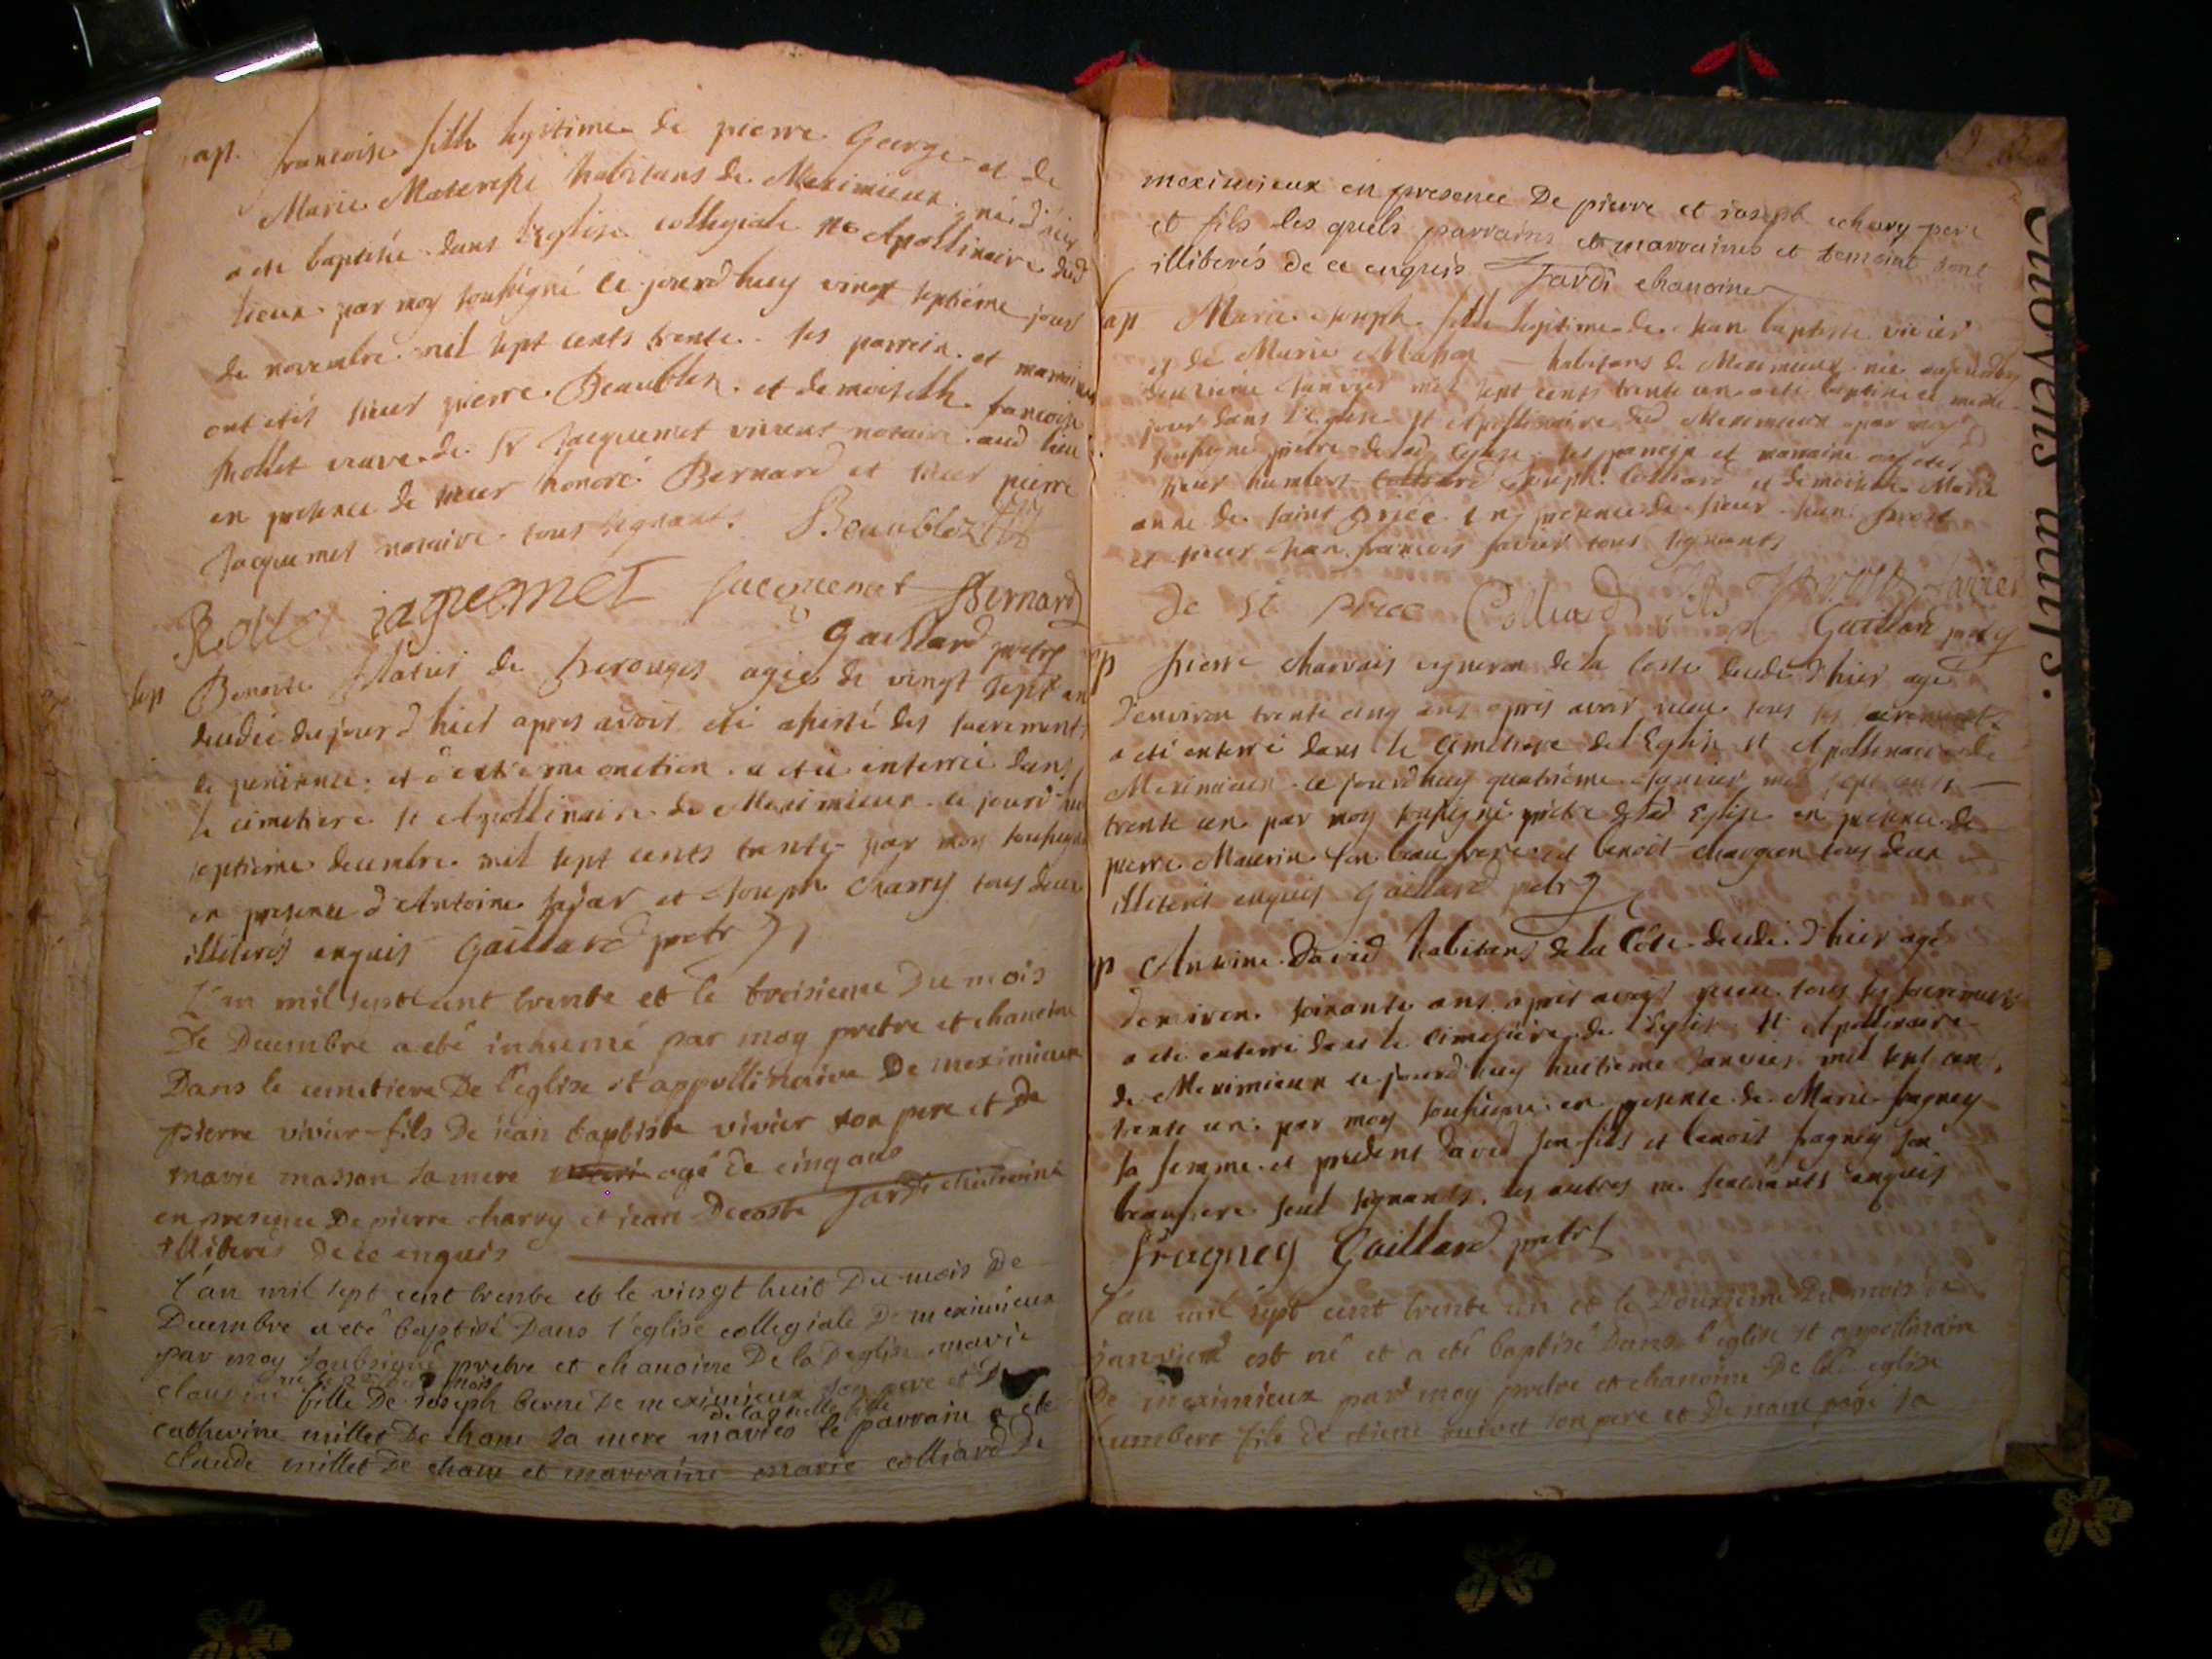 ap. francoise fille legitime de pierre George et de
Marie habitans de Meximieux née d'hier
a ete baptisée dans l'Eglise collegiale st Apollinaire dud
lieux par moy soussigné ce jourd'huy vingt septieme jour
de novembre mil sept cents trente. ses parrein et marraine
ont étés sieur pierre Beaublez et demoiselle francoise
Rollet veuve de Sr Jacquemet vivant notaire aud lieu
en presence de sieur honoré Bernard et sieur pierre
Jacquemet notaire tous signants. Beaublez
Rollet jaquemet Jacquemet Bernard
Gaillard pretre
sep Benoite de perouges agée de vingt sept ans
decedée du jour d'hier apres avoir eté assisté des sacrements
de penitence et d'extreme onction a eteé enterrée dans
le cimetiere st Apollinaire de Meximieux ce jourd'huy
septieme decembre mil sept cents trente par moy soussigné
en presence d'Antoine et Joseph Charry tous deux
illiterés enquis Gaillard pretr
L'an mil sept cent trente et le troisieme du mois
De Decembre a eté inhumé par moy pretre et chanoine
Dans le cemetiere De l'eglise st appollinaire De meximieux
pierre vivier fils De jean baptiste vivier son pere et de
marie masson sa mere agé de cinq ans
en presence De pierre charry et jean Decoste Jardi chanoine
illiterés de ce enquis
l'an mil sept cent trente et le vingt huit Du mois De
Decembre a eté baptisé Dans l'eglise collegiale De meximieux
par moy soubsigné pretre et chanoine De la D eglise marie
claudine fille De joseph berne De meximieux son pere et De
catherine millet De chane sa mere mariés le parrain a eté
de laquelle fille
claude millet De chane et marraine marie colliard De
meximieux en presence De pierre et joseph charry pere
et fils les quels parrains et marraines et temoins sont
illiterés de ce enquis Jardi chanoine
ap Marie Joseph fille legitime de Jean baptiste vivier
et de Marie Masson habitans de Meximieux née aujourd'huy
deuxieme Janvier mil sept cents trente un a eté baptisée le meme
jour dans l'Eglise st Apollinaire dud Meximieux par moy
soussigné pretre de lad Eglise. ses parrein et marraine ont étés
sieur humbert Colliard Joseph Colliard et demoiselle Marie
anne de saint priée en presence de sieur Jean
et sieur Jean francois favier tous signants
de st priee Colliard fils favier
Gaillard pretr
sp pierre charvais vigneron de la Coste decedé d'hier agé
d'environ trente cinq ans apres avoir receu tous les sacrements
a eté enterré dans le cimetiere de l'Eglise st Apollinaire de
Meximieux ce jourd'huy quatrieme Janvier mil sept cents
trente un par moy soussigné pretre de lad Eglise en presence de
pierre Maurin son beau frere et benoit tous deux
illiterés enquis Gaillard pretr
sp Antoine David habitant de la Côte decedé d'hier agé
d'environ soixante ans apres avoir receu tous les sacrements
a eté enterré dans le cimetiere de l'Eglise st Apollinaire
de Meximieux ce jourd'huy huitieme Janvier mil sept cents
trente un par moy soussigné en presence de Marie fragney
sa femme et prudent David son fils et benoit fragney son
beaufrere seul signants, les autres ne scachants enquis
fragney Gaillard pretr
l'an mil sept cent trente un et le Douzieme Du mois de
janvier est né et a eté baptisé Dans l'eglise st appollinaire
De meximieux par moy pretre et chanoine De la D eglise
humbert fils de etiene son pere et De sa